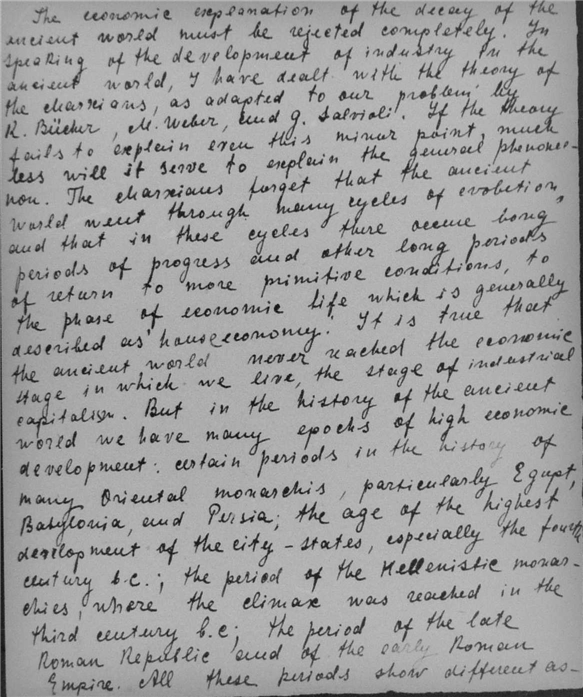 The economic explanation of the decay of the
ancient world must be rejected completely. In
speaking of the development of industry in the
ancient world, I have dealt with the theory of
the Marxians, as adapted to our problem by
K. Bücher, M. Weber, and G. Salvioli. If the theory
fails to explain even this minor point, much
less will it serve to explain the general phenome-
non. The Marxians forget that the ancient
world went through many cycles of evolution,
and that in these cycles there occur long
periods of progress and other long periods
of return to more primitive conditions, to
the phase of economic life which is generally
described as 'house economy.' It is true that
the ancient world never reached the economic
stage in which we live, the stage of industrial
capitalism. But in the history of the ancient
world we have many epochs of high economic
development: certain periods in the history of
many Oriental monarchis, particularly Egypt,
Babylonia, and Persia; the age of the highest
development of the city-states, especially the fourth
century b.c.; the period of the Hellenistic monar-
chies, where the climax was reached in the
third century b.c; the period of the late
Roman Republic and of the early Roman
Empire. All these periods show different as-